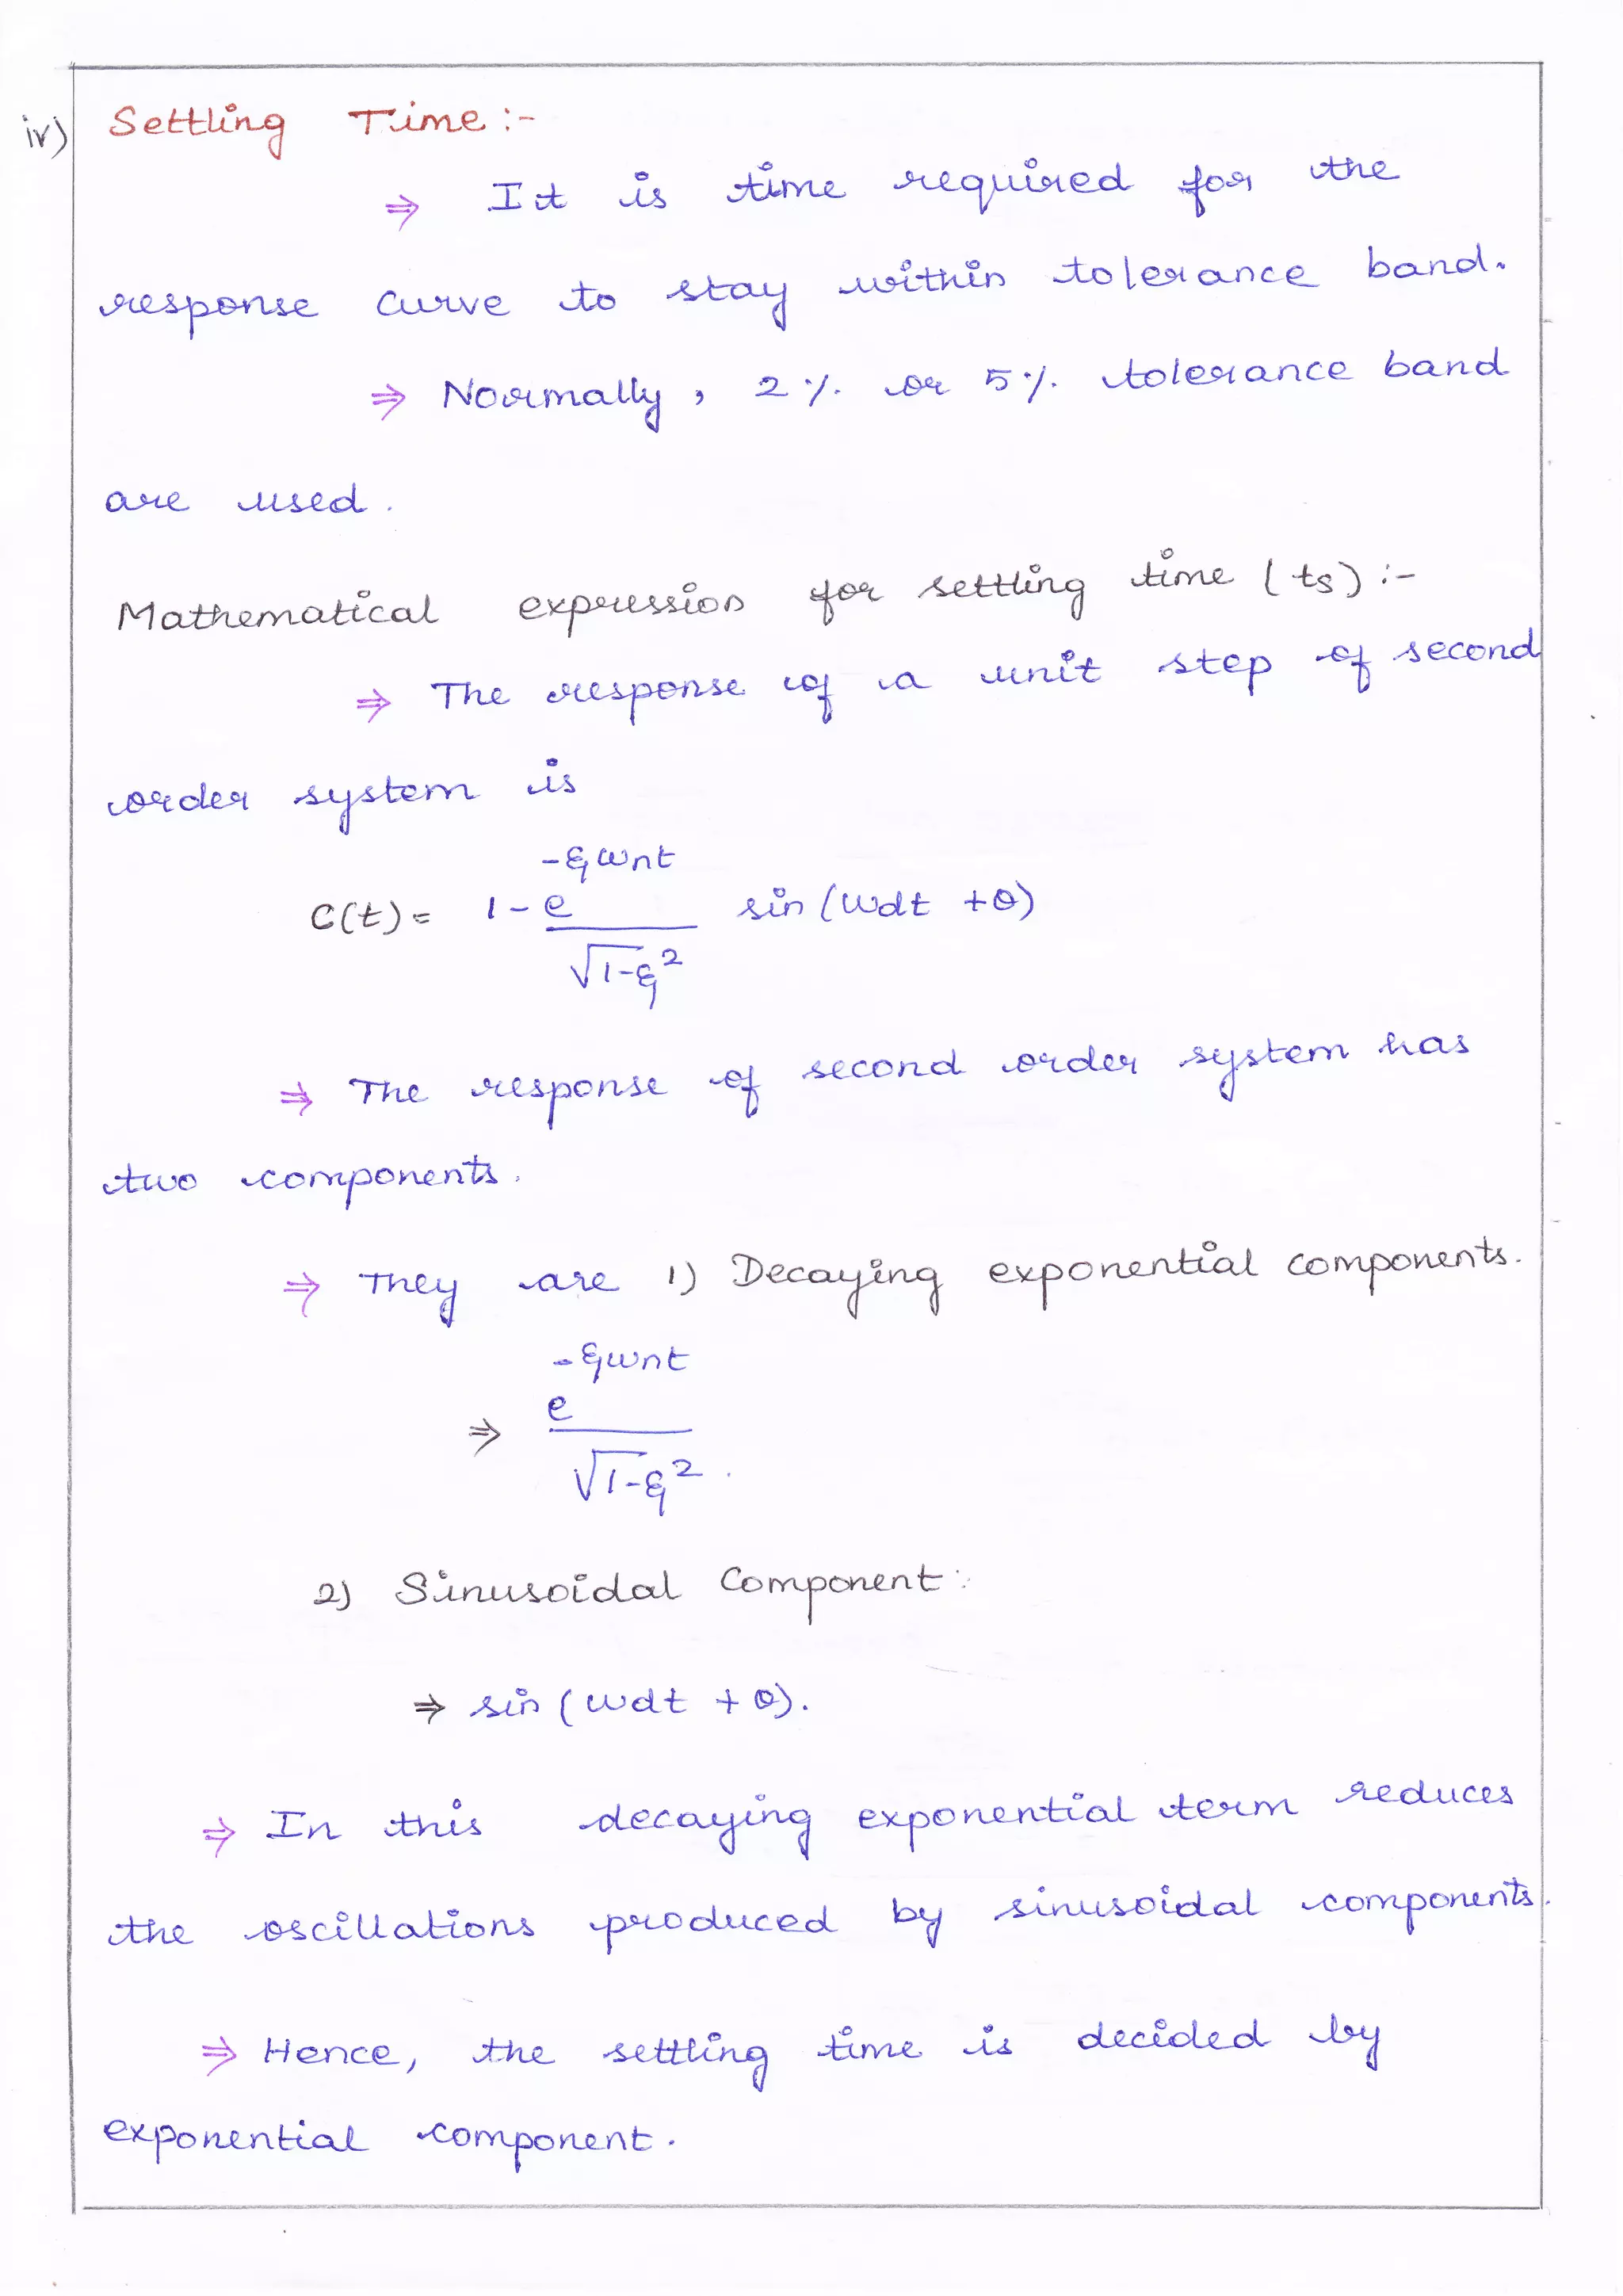 iv) Settling Time :-
⇒ It is time required for the
response curve to stay within tolerance band.
⇒ Normally, 2 %. or 5 %. tolerance band
are used.
Mathematical expression for settling time (ts) :-
⇒ The response of a unit step of second
order system is
C(t) = 1 - e^(-ξωnt) / √(1-ξ²) sin (ωdt + θ)
⇒ The response of second order system has
two components.
⇒ They are 1) Decaying exponential components.
⇒ e^(-ξωnt) / √(1-ξ²).
2) Sinusoidal Component :
⇒ sin (ωdt + θ).
⇒ In this decaying exponential term reduces
the oscillations produced by sinusoidal components.
⇒ Hence, the settling time is decided by
exponential component.